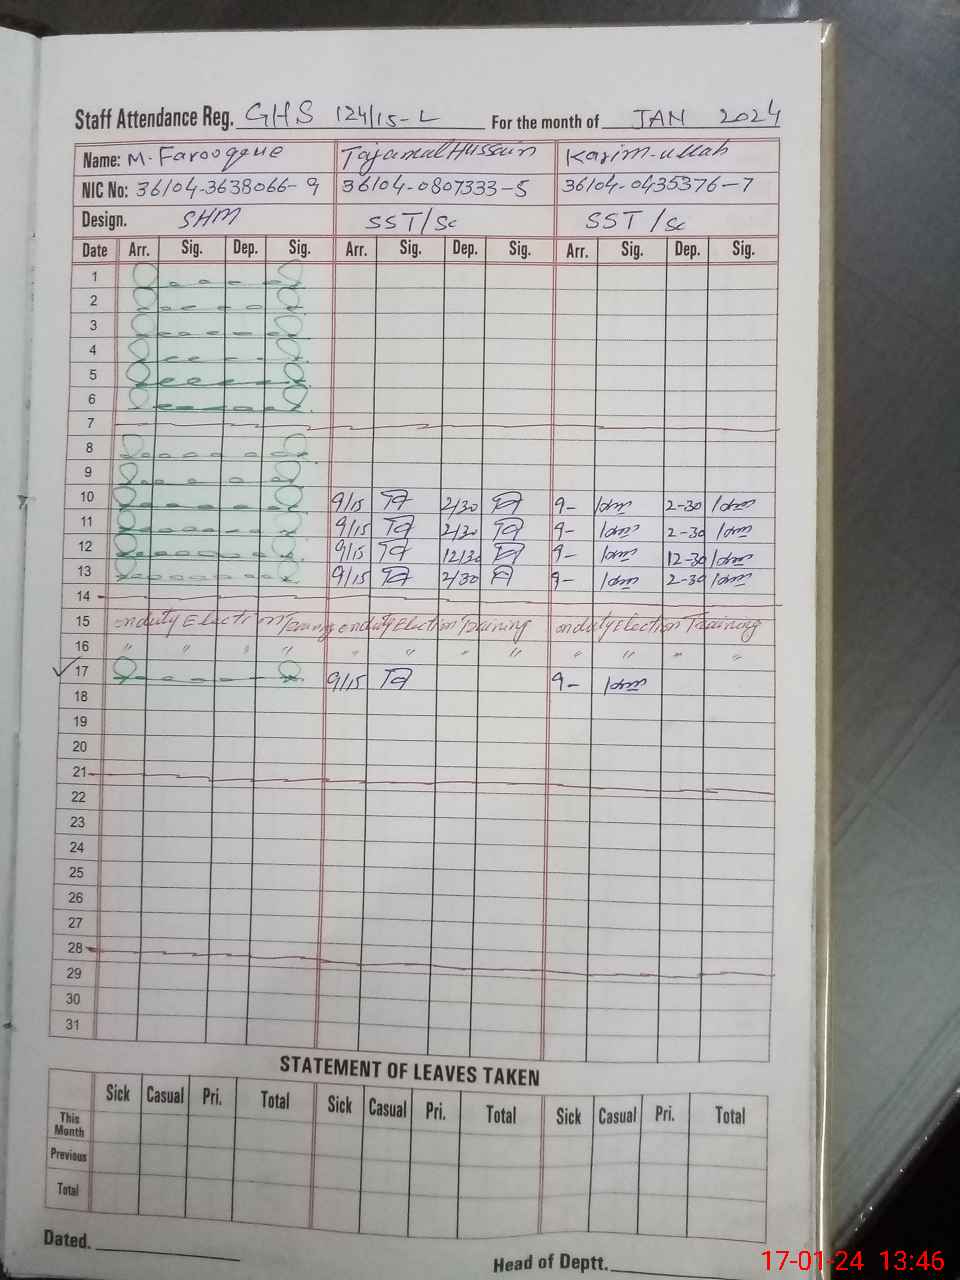 Staff Attendance Reg. GHS 124/15-L For the month of JAN 2024
Name: M. Farooque Tajamal Hussain Karim-ullah
NIC No: 36104-3638066-9 36104-0807333-5 36104-0435376-7
Design. SHM SST/Sc SST/Sc
Date Arr. Sig. Dep. Sig. Arr. Sig. Dep. Sig. Arr. Sig. Dep. Sig.
1
2
3
4
5
6
7
8
9
10 9/15 2/30 9- 2-30
11 9/15 2/30 9- 2-30
12 9/15 12/30 9- 12-30
13 9/15 2/30 9- 2-30
14
15 on duty Election Training on duty Election Training on duty Election Training
16 " " " " " " " " " " " "
17 9/15 9-
18
19
20
21
22
23
24
25
26
27
28
29
30
31
STATEMENT OF LEAVES TAKEN
Sick Casual Pri. Total Sick Casual Pri. Total Sick Casual Pri. Total
This Month
Previous
Total
Dated.
Head of Deptt.
17-01-24 13:46